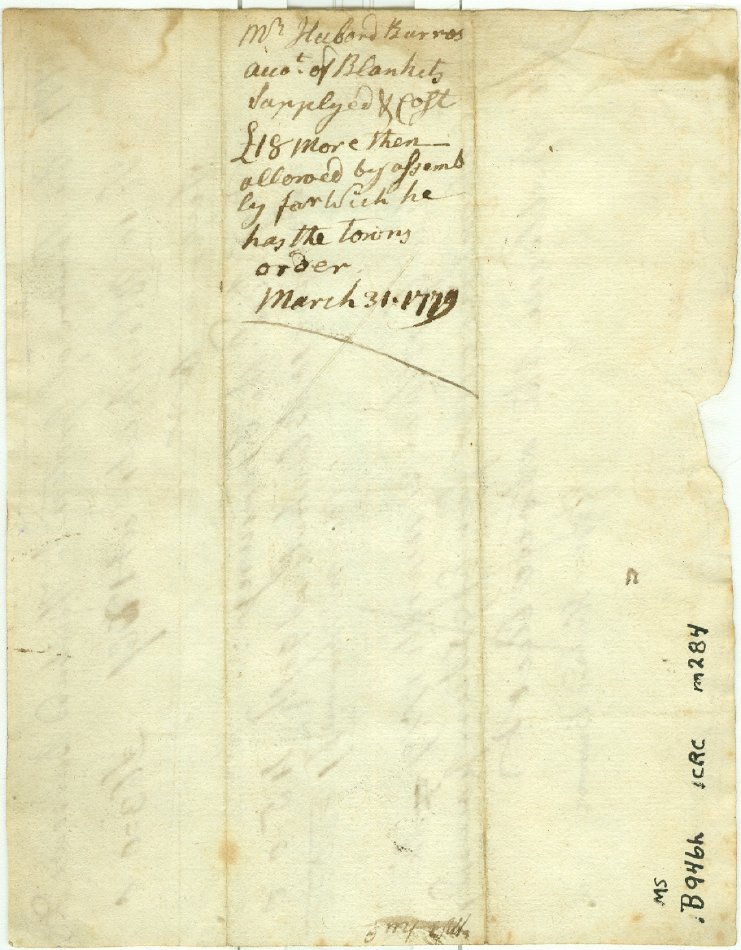 Mr Hubord Burros
accot. of Blankets
Supplyed & Cost
£18 more then
allowed by assemb
ly for Wich he
has the towns
order
March 31. 1779
MS
B946h SCRC m284